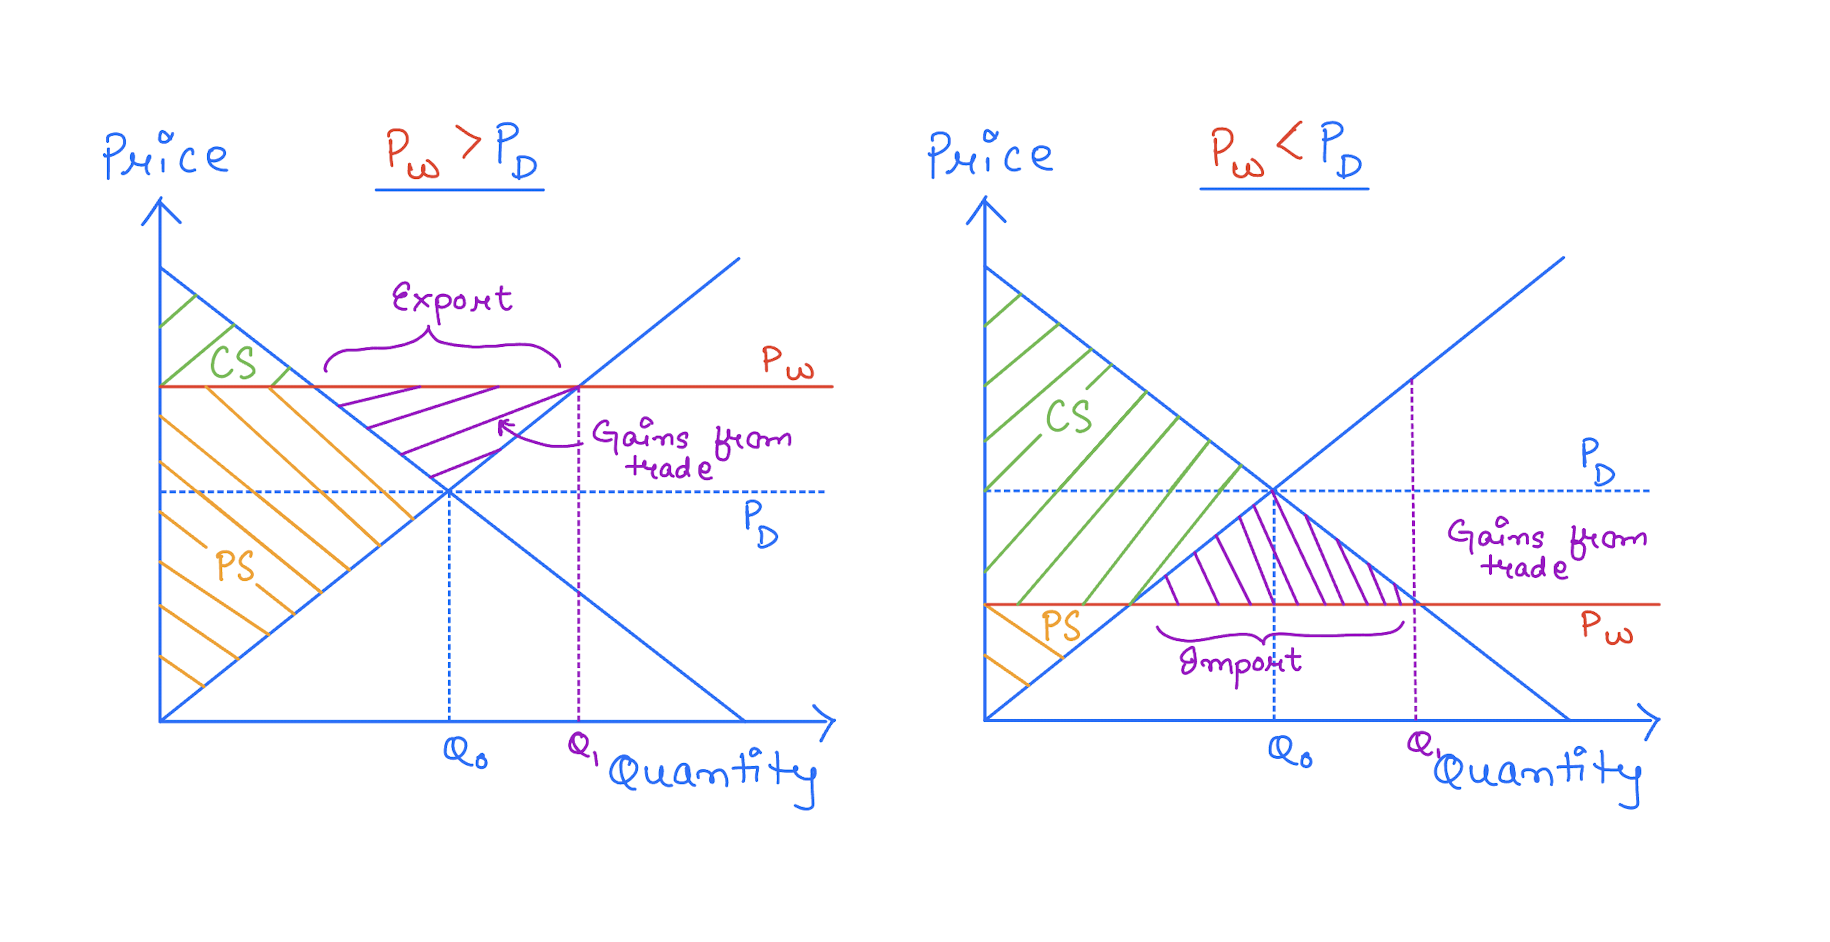 Price
P_W > P_D
Export
CS
P_W
Gains from
trade
P_D
PS
Q_0
Q_1
Quantity
Price
P_W < P_D
CS
P_D
Gains from
trade
PS
P_W
Import
Q_0
Q_1
Quantity